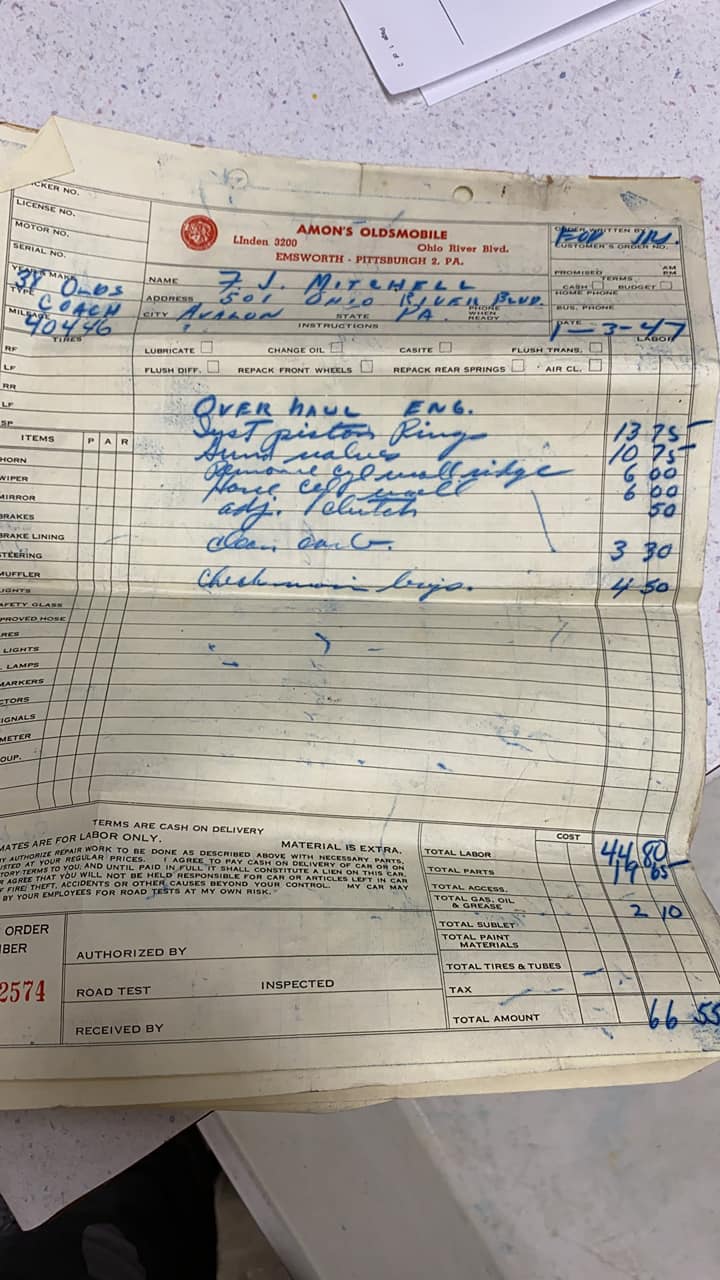 Page 1 of 2
CKER NO.
LICENSE NO.
MOTOR NO.
SERIAL NO.
YEAR & MAKE
38 OLDS
TYPE
COACH
MILEAGE
40446
AMON'S OLDSMOBILE
Linden 3200 Ohio River Blvd.
EMSWORTH - PITTSBURGH 2, PA.
ORDER WRITTEN BY
CUSTOMER'S ORDER NO.
PROMISED AM PM
TERMS
CASH BUDGET
HOME PHONE
BUS. PHONE
DATE 1-3-47
NAME F. J. MITCHELL
ADDRESS 501 OHIO RIVER BLVD.
CITY AVALON STATE PA. PHONE WHEN READY
INSTRUCTIONS
LABOR
TIRES
RF
LF
RR
LF
SP
LUBRICATE CHANGE OIL CASITE FLUSH TRANS.
FLUSH DIFF. REPACK FRONT WHEELS REPACK REAR SPRINGS AIR CL.
OVER HAUL ENG.
piston Rings 13 75
valves 10 75
Remove cyl wall ridge 6 00
Hone cyl wall 6 00
adj. clutch 50
clean carb. 3 30
Check main brgs. 4 50
ITEMS P A R
HORN
WIPER
MIRROR
BRAKES
BRAKE LINING
STEERING
MUFFLER
LIGHTS
AFETY GLASS
PROVED HOSE
RES
LIGHTS
LAMPS
MARKERS
CTORS
IGNALS
METER
OUP.
TERMS ARE CASH ON DELIVERY
MATES ARE FOR LABOR ONLY. MATERIAL IS EXTRA.
Y AUTHORIZE REPAIR WORK TO BE DONE AS DESCRIBED ABOVE WITH NECESSARY PARTS,
USTED AT YOUR REGULAR PRICES. I AGREE TO PAY CASH ON DELIVERY OF CAR OR ON
TORY TERMS TO YOU, AND UNTIL PAID IN FULL IT SHALL CONSTITUTE A LIEN ON THIS CAR.
R AGREE THAT YOU WILL NOT BE HELD RESPONSIBLE FOR CAR OR ARTICLES LEFT IN CAR
F FIRE, THEFT, ACCIDENTS OR OTHER CAUSES BEYOND YOUR CONTROL. MY CAR MAY
BY YOUR EMPLOYEES FOR ROAD TESTS AT MY OWN RISK.
COST
TOTAL LABOR 44 80
TOTAL PARTS 19 65
TOTAL ACCESS.
TOTAL GAS, OIL & GREASE 2 10
TOTAL SUBLET
TOTAL PAINT MATERIALS
TOTAL TIRES & TUBES
TAX
TOTAL AMOUNT 66 55
ORDER
BER
2574
AUTHORIZED BY
ROAD TEST INSPECTED
RECEIVED BY